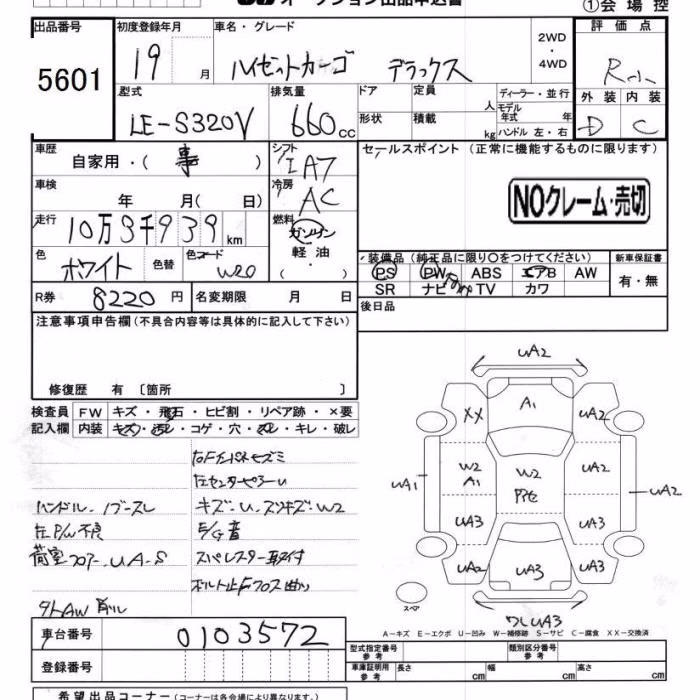 オークション出品申込書
①会場控
出品番号
5601
初度登録年月
19 月
車名・グレード
ハイゼットカーゴ デラックス
2WD
・
4WD
評価点
外装 内装
D C
型式
LE-S320V
排気量
660 cc
ドア
定員
人
ディーラー・並行
モデル年式 年
形状
積載
kg
ハンドル 左・右
車歴
自家用・( 事 )
シフト
IA7
セールスポイント (正常に機能するものに限ります)
車検
年 月( 日)
冷房
AC
NOクレーム・売切
走行
10万3千939 km
燃料
ガソリン
軽油
・
( )
色
ホワイト
色替
色コード
W20
装備品 (純正品に限り〇をつけてください)
新車保証書
PS PW ABS エアB AW
有・無
SR ナビ TV カワ
R券
8220 円
名変期限 月 日
後日品
注意事項申告欄(不具合内容等は具体的に記入して下さい)
修復歴 有 〔箇所 〕
検査員
記入欄
FW キズ・飛石・ヒビ割・リペア跡・×要
内装 キズ・汚レ・コゲ・穴・ズレ・キレ・破レ
キズ・U・スリキズ・W2
ハンドル・ノブスレ
左P/W不良
E/G音
荷室フロアー UA-S
UA2
XX
A1
UA2
UA1
W2
A1
W2
UA2
UA2
UA3
UA3
UA2
UA3
UA2
UA3
スペア
A-キズ E-エクボ U-凹み W-補修跡 S-サビ C-腐食 XX-交換済
車台番号
0103572
登録番号
型式指定番号
参考
類別区分番号
参考
車庫証明用
参考
長さ cm
幅 cm
高さ cm
希望出品コーナー (コーナーは各会場により異なります。)